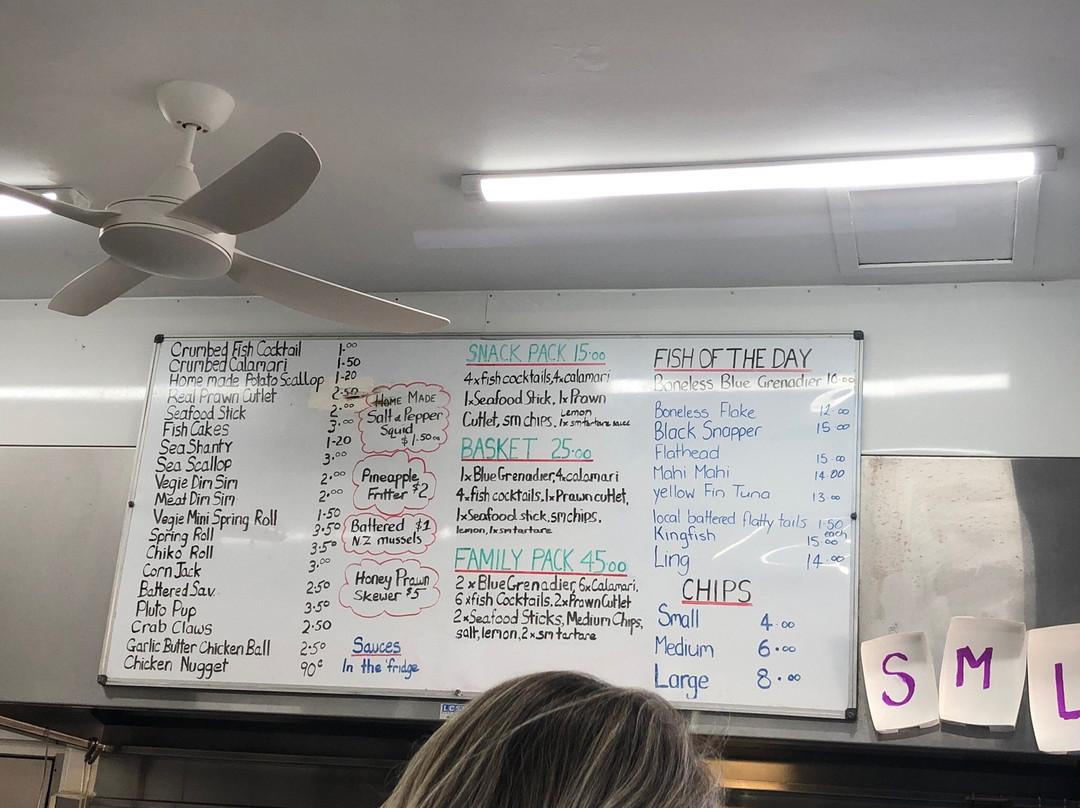 Crumbed Fish Cocktail 1.00
Crumbed Calamari 1.50
Home made Potato Scallop 1.20
Real Prawn Cutlet 2.50
Seafood Stick 2.00
Fish Cakes 3.00
Sea Shanty 1.20
Sea Scallop 3.00
Vegie Dim Sim 2.00
Meat Dim Sim 2.00
Vegie Mini Spring Roll 1.50
Spring Roll 3.50
Chiko Roll 3.50
Corn Jack 3.00
Battered Sav. 2.50
Pluto Pup 3.50
Crab Claws 2.50
Garlic Butter Chicken Ball 2.50
Chicken Nugget 90c
HOME MADE
Salt & Pepper
Squid
$1.50
Pineapple
Fritter $2
Battered $1
N.Z mussels
Honey Prawn
Skewer $5
Sauces
In the fridge
SNACK PACK 15.00
4x fish cocktails, 4x calamari
1x Seafood Stick, 1x Prawn
Cutlet, sm chips, Lemon
1x sm tartare sauce
BASKET 25.00
1x Blue Grenadier, 4x calamari
4x fish cocktails, 1x Prawn cutlet,
1x Seafood stick, sm chips,
lemon, 1x sm tartare
FAMILY PACK 45.00
2 x Blue Grenadier, 6x Calamari,
6 x fish Cocktails, 2x Prawn Cutlet
2x Seafood Sticks, Medium Chips,
salt, lemon, 2x sm tartare
FISH OF THE DAY
Boneless Blue Grenadier 10.00
Boneless Flake 12.00
Black Snapper 15.00
Flathead 15.00
Mahi Mahi 14.00
yellow Fin Tuna 13.00
local battered flatty tails 1.50 each
Kingfish 15.00
Ling 14.00
CHIPS
Small 4.00
Medium 6.00
Large 8.00
S
M
L